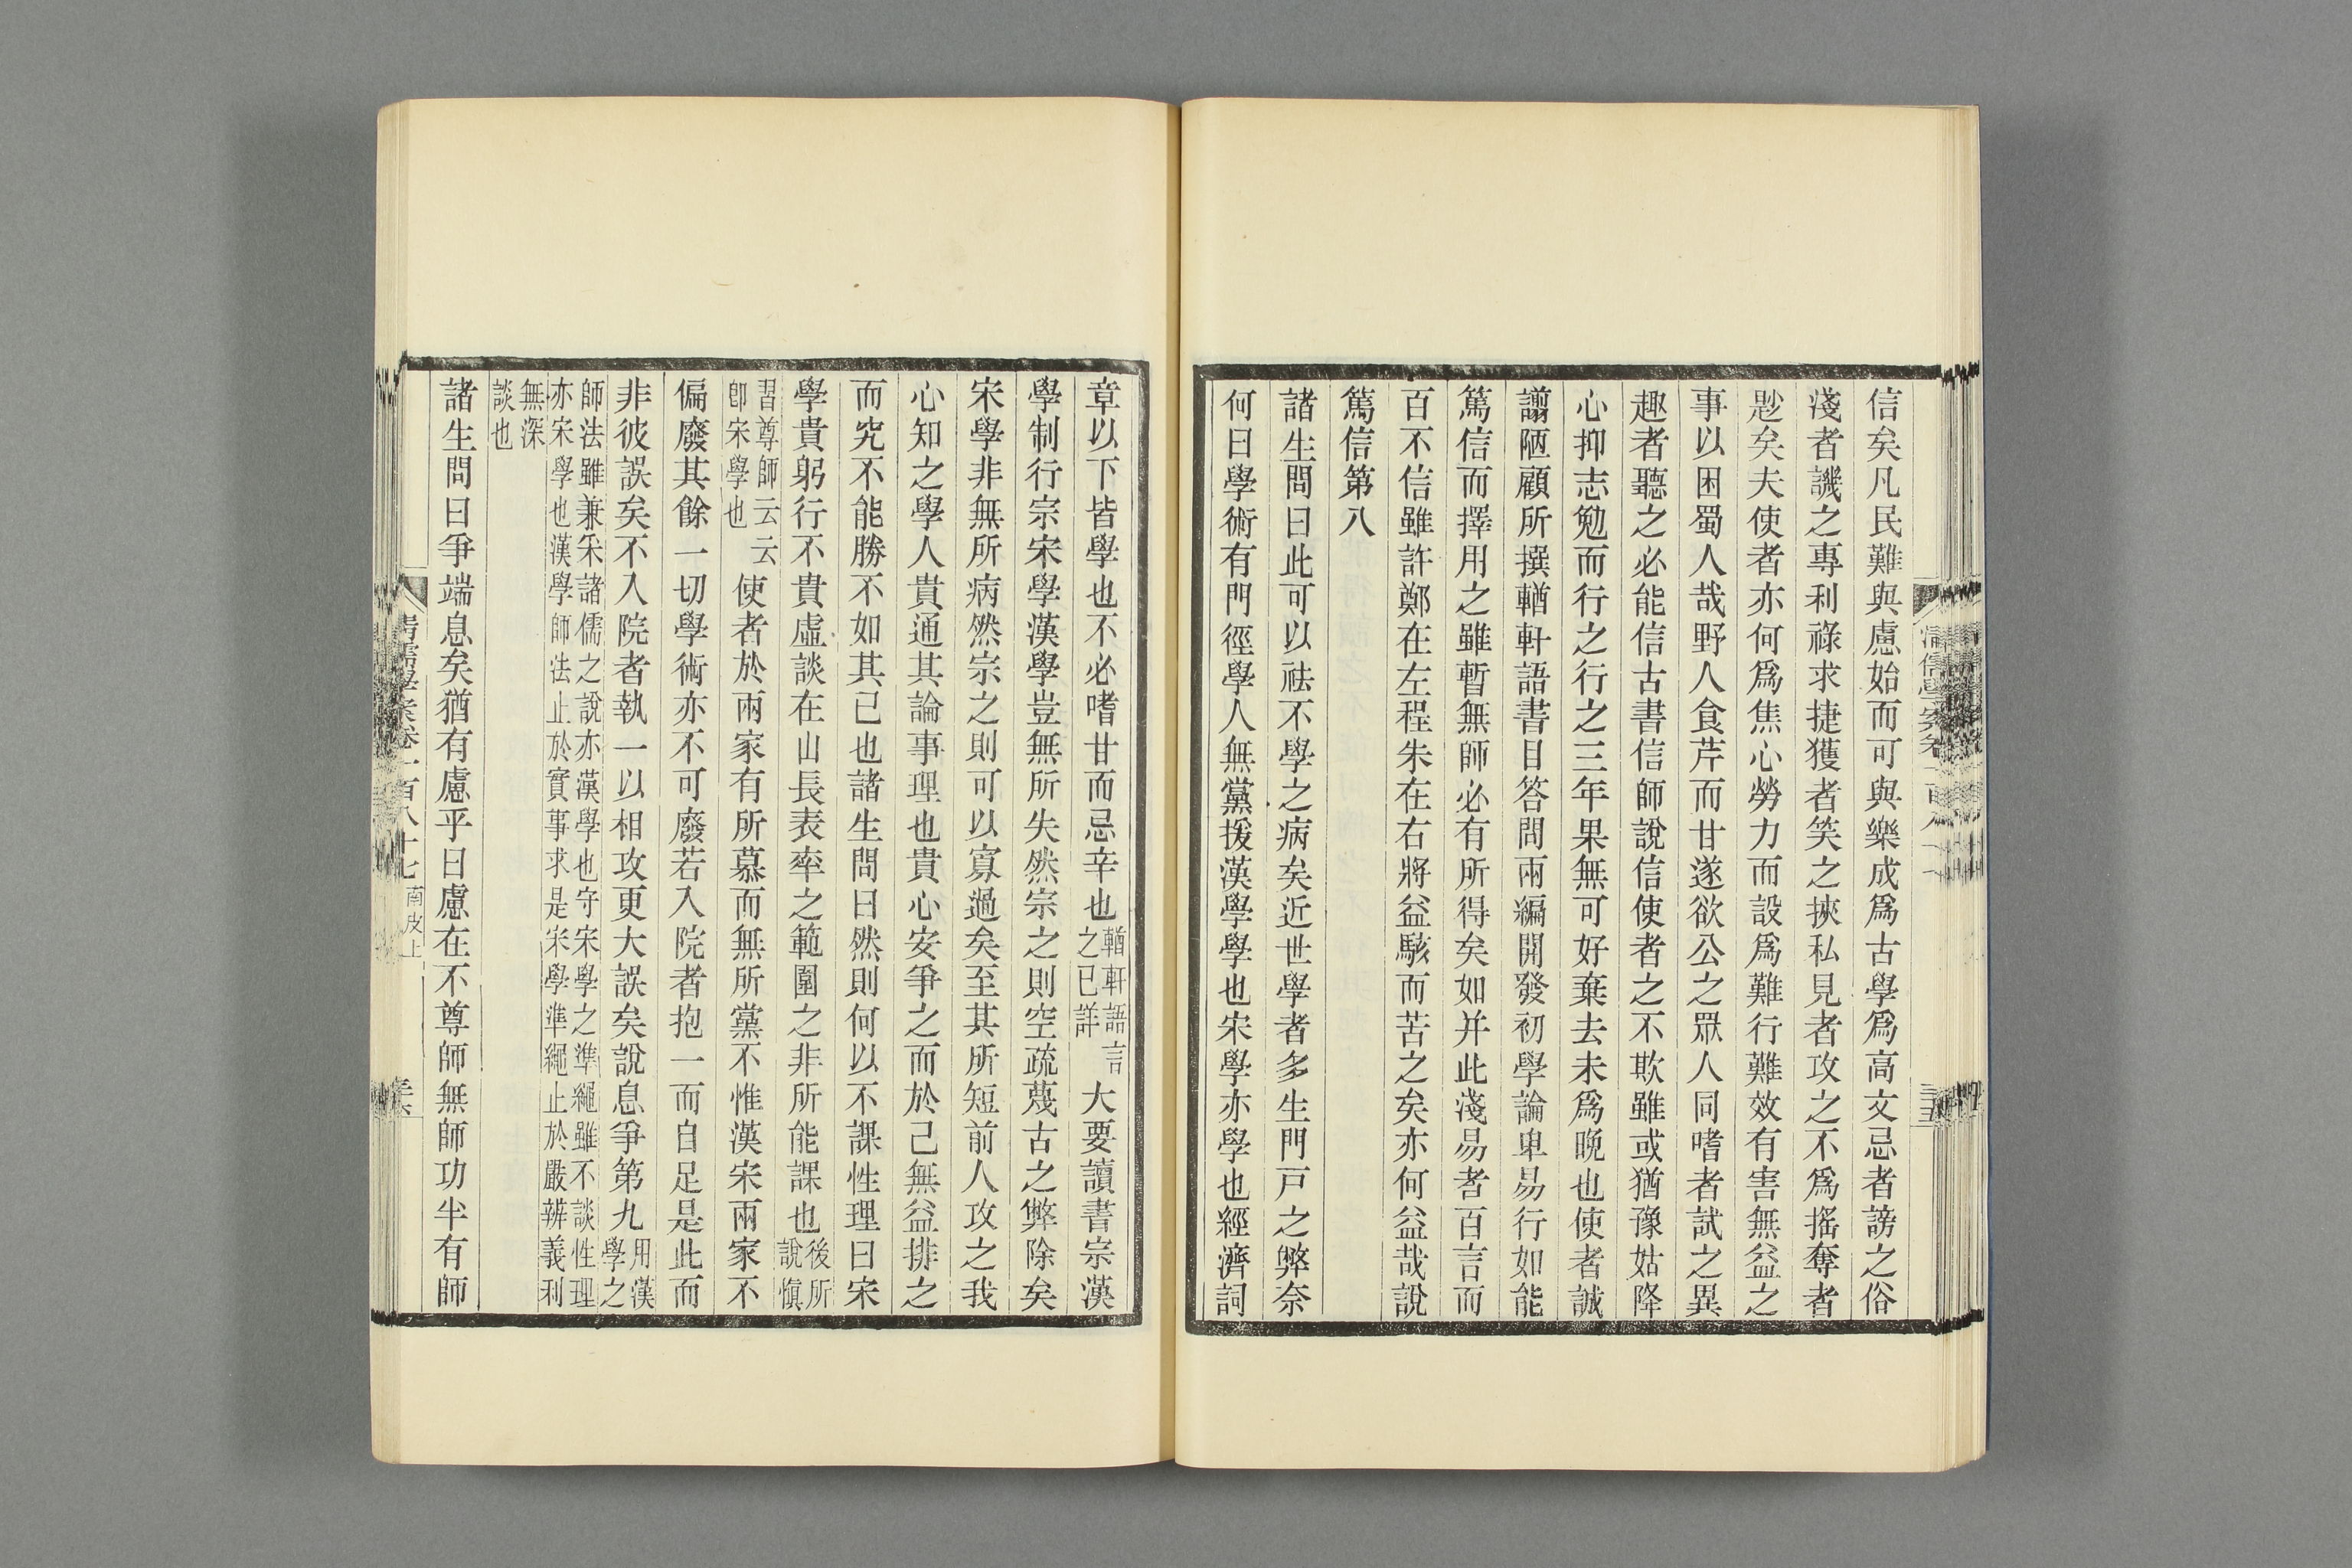 信矣凡民難與慮始而可與樂成爲古學爲高文忌者謗之俗
淺者譏之專利祿求捷獲者笑之挾私見者攻之不爲搖奪者
尟矣夫使者亦何爲焦心勞力而設爲難行難效有害無益之
事以困蜀人哉野人食芹而甘遂欲公之眾人同嗜者試之異
趣者聽之必能信古書信師說信使者之不欺雖或猶豫姑降
心抑志勉而行之行之三年果無可好棄去未爲晚也使者誠
譾陋顧所撰輶軒語書目答問兩編開發初學論卑易行如能
篤信而擇用之雖暫無師必有所得矣如并此淺易者百言而
百不信雖許鄭在左程朱在右將益駭而苦之矣亦何益哉說
篤信第八
諸生問曰此可以祛不學之病矣近世學者多生門戶之弊奈
何曰學術有門徑學人無黨援漢學學也宋學亦學也經濟詞
章以下皆學也不必嗜甘而忌辛也輶軒語言之已詳大要讀書宗漢
學制行宗宋學漢學豈無所失然宗之則空疏蔑古之弊除矣
宋學非無所病然宗之則可以寡過矣至其所短前人攻之我
心知之學人貴通其論事理也貴心安爭之而於己無益排之
而究不能勝不如其已也諸生問曰然則何以不課性理曰宋
學貴躬行不貴虛談在山長表率之範圍之非所能課也後所說慎
習尊師云云卽宋學也使者於兩家有所慕而無所黨不惟漢宋兩家不
偏廢其餘一切學術亦不可廢若入院者抱一而自足是此而
非彼誤矣不入院者執一以相攻更大誤矣說息爭第九用漢學之
師法雖兼采諸儒之說亦漢學也守宋學之準繩雖不談性理亦宋學也漢學師法止於實事求是宋學準繩止於嚴辨義利
無深談也
諸生問曰爭端息矣猶有慮乎曰慮在不尊師無師功半有師
清儒學案卷一百八十七 南皮上